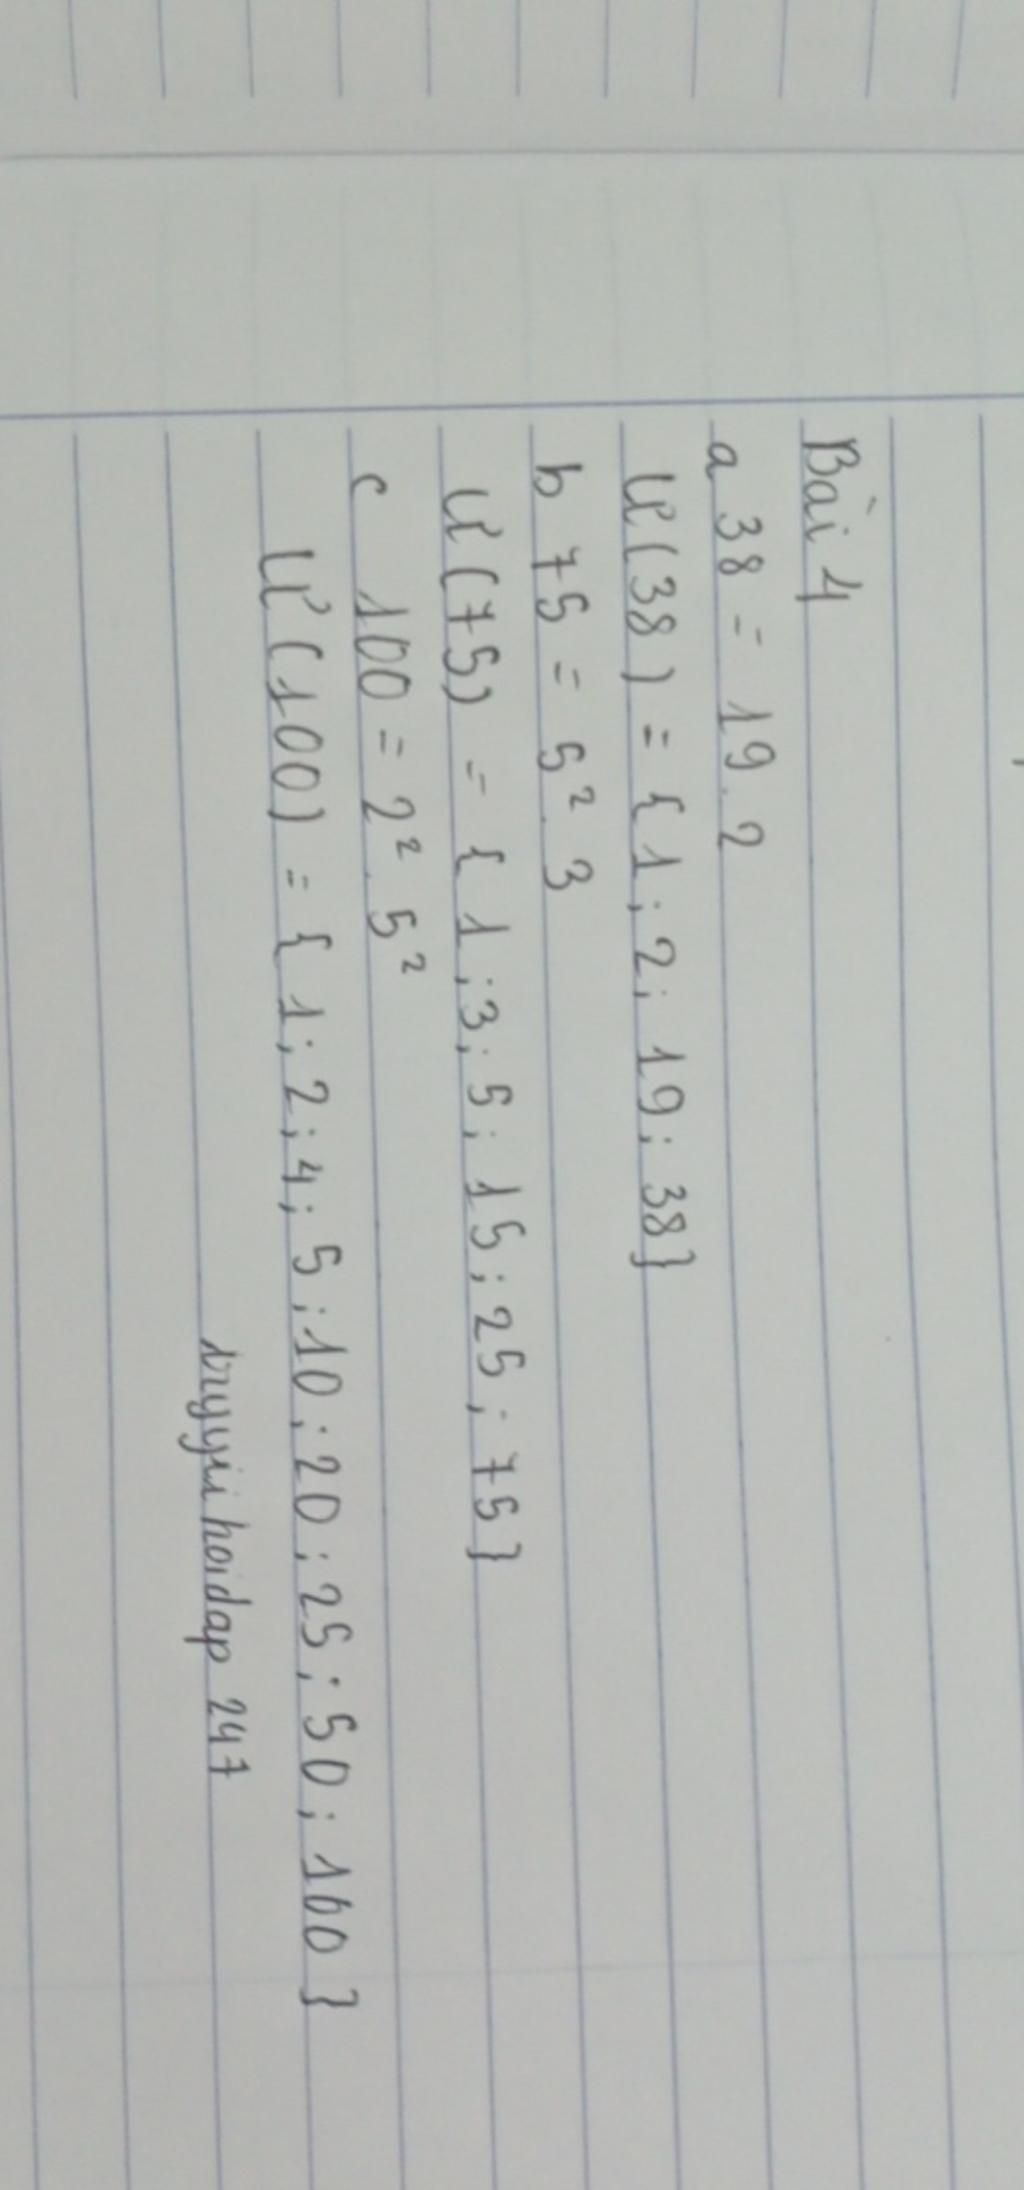 Bài 4
a 38 = 19.2
Ư(38) = {1; 2; 19; 38}
b 75 = 5².3
Ư(75) = {1; 3; 5; 15; 25; 75}
c 100 = 2².5²
Ư(100) = {1; 2; 4; 5; 10; 20; 25; 50; 100}
hoidap 247